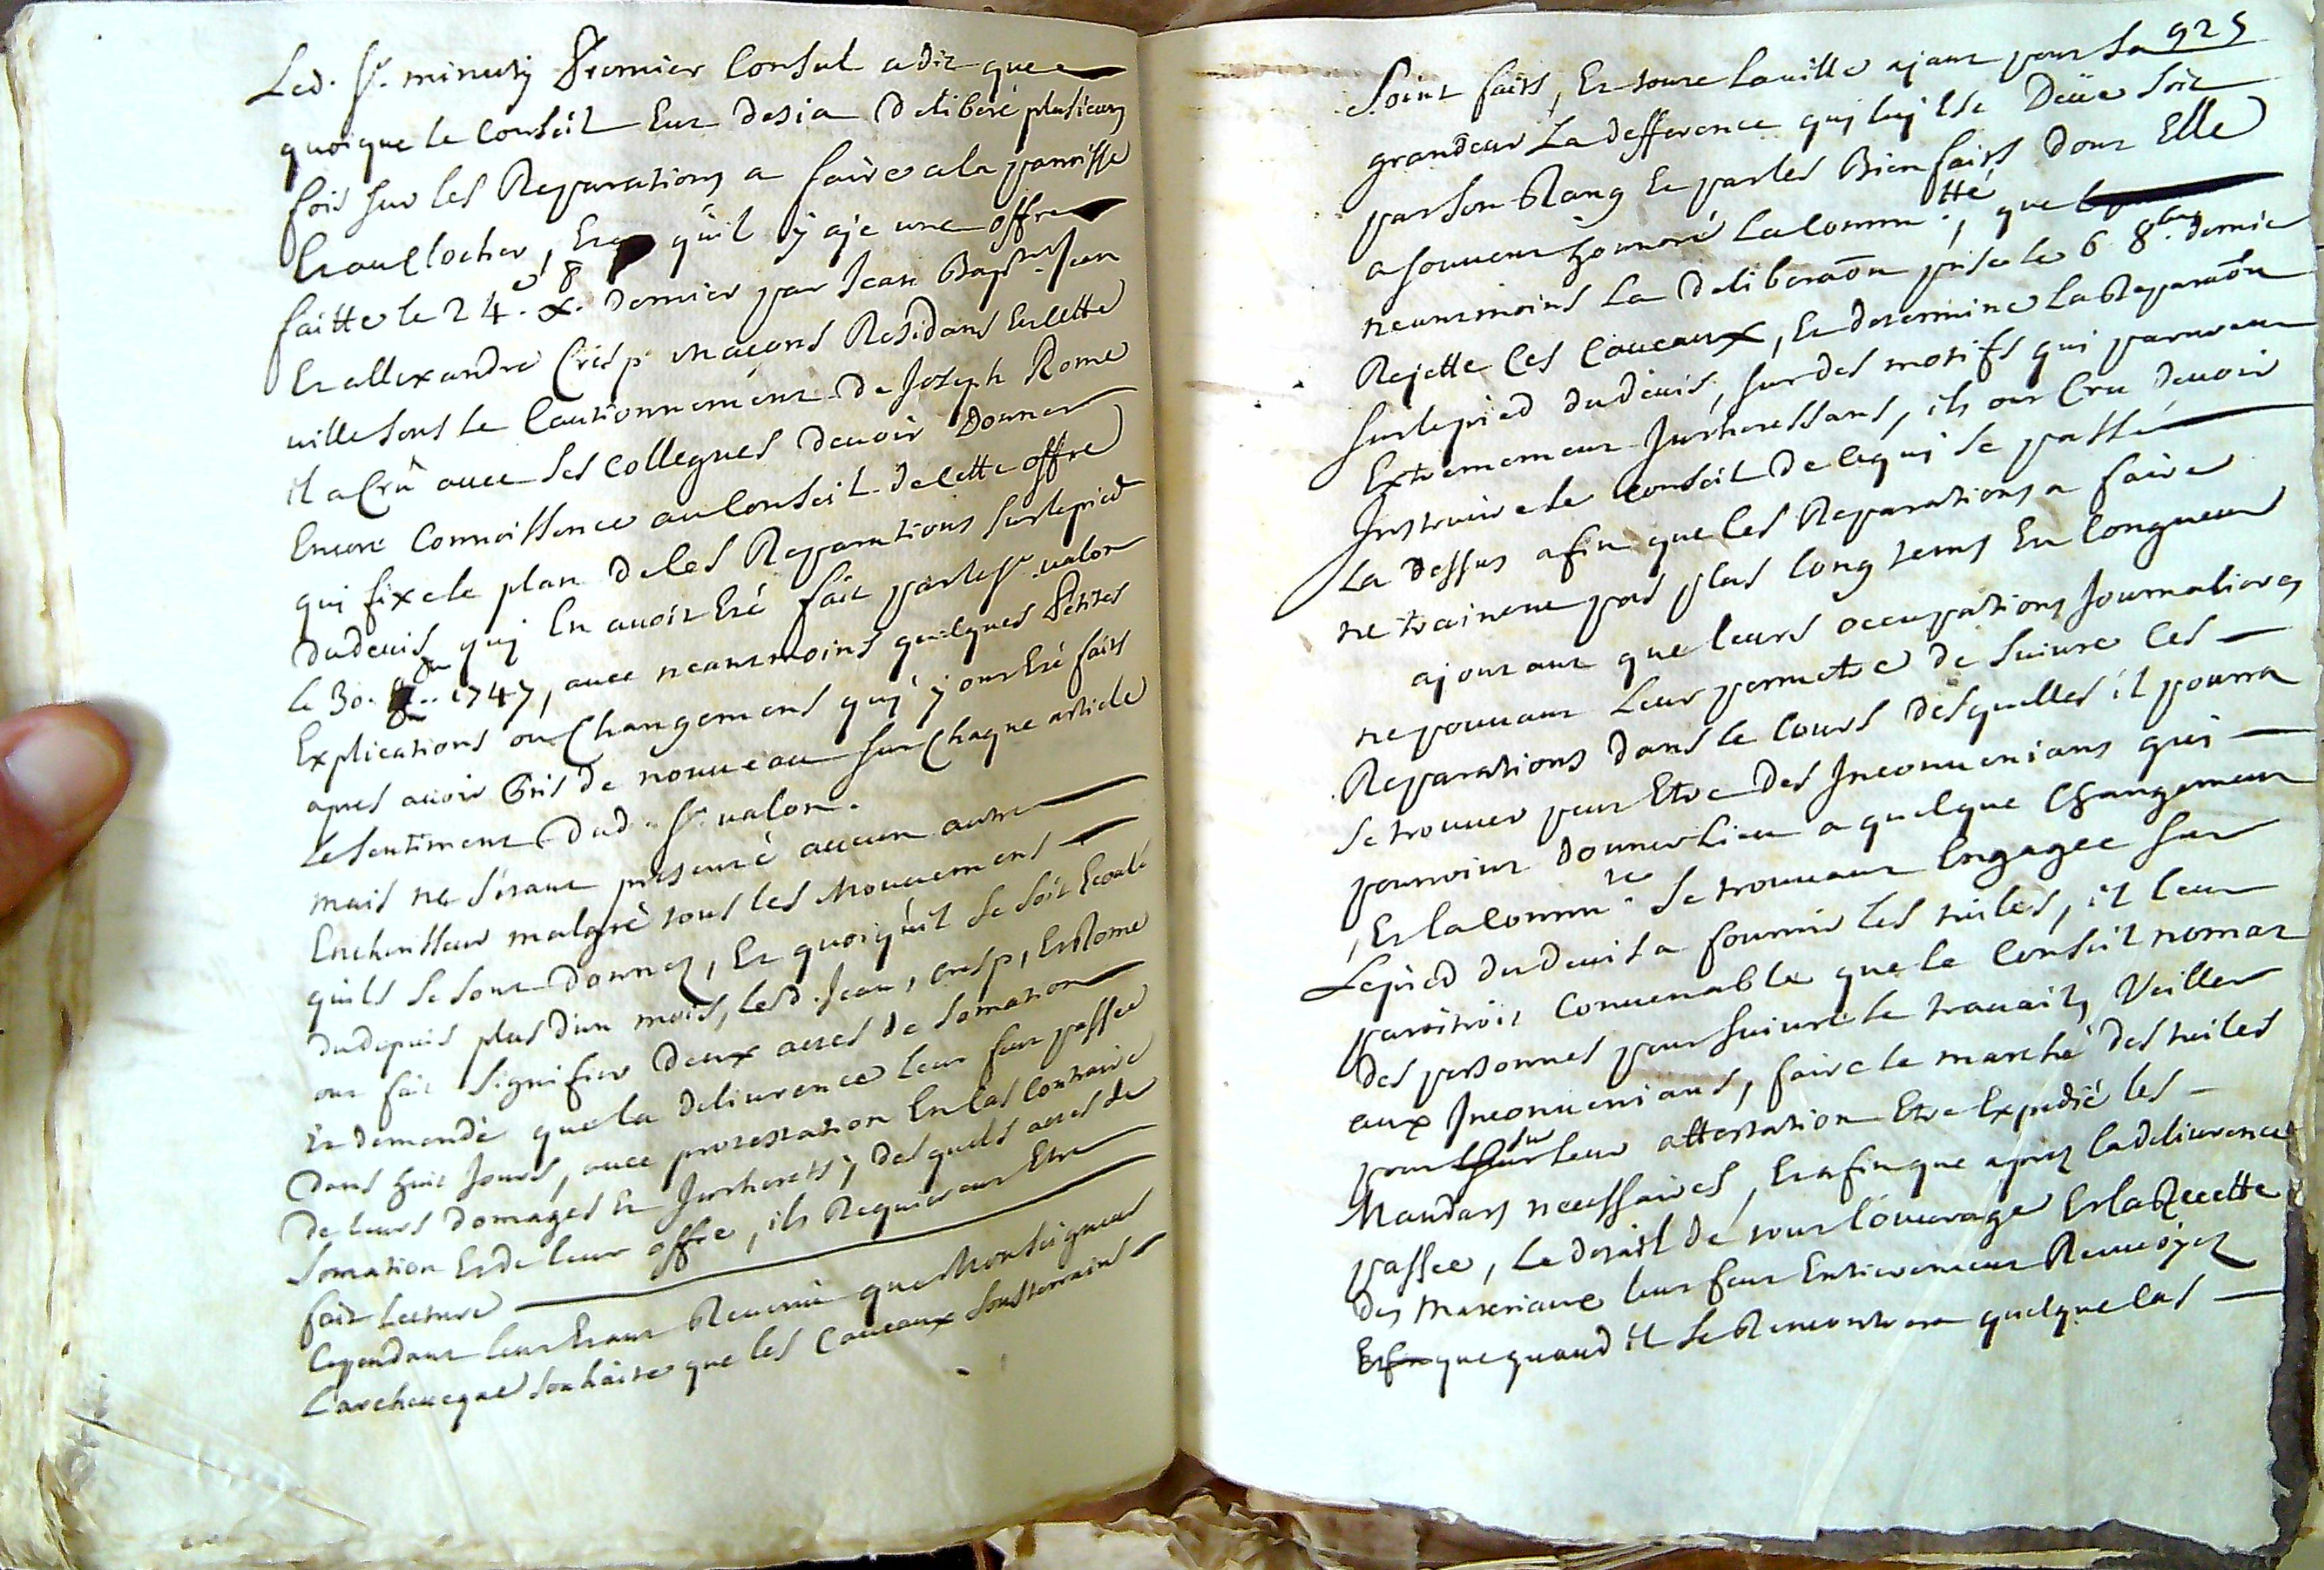 Led. Sr. minuty Premier Consul a dit que
quoique le conseil Eut desia deliberé plusieurs
fois sur les Reparations a faire a la parroisse
Et au clocher, Et qu'il y aje une offre
faitte le 24.e Xbre. dernier par Jean Bapte. Jean
Et allexandre Cresp maçons Residans En Cette
ville sous le Cautionnement de Joseph Rome
il a Crû avec ses collegues devoir Donner
Encore Connoissence au Conseil de Cette offre
qui fixe le plan de Ces Reparations sur le pied
du devis quj En avoit Eté fait par le sr. valon
le 30. 1747, avec neantmoins quelques Petites
Explications ou Changemens quj y ont Eté faits
apres avoir Pris de nouveau sur Chaque article
le sentiment dud. Sr. valon.
mais ne s'étant presenté aucun autre
Encherisseur malgré tous les Mouvemens
quils se sont donnez, Et quoiqu'il se soit Ecoulé
du depuis plus d'un mois, lesd. Jean, cresp, Et Rome
ont fait signifier deux actes de somation
Et demandé que la delivrence leur fut passée
dans huit Jours, avec protestation En Cas Contraire
de leurs domages Et Jntherets, desquels actes de
somation Et de leur offre, ils Requierent Etre
fait Lecture
Cependant leur Etant Revenu que Monseigneur
L'archeveque souhaite que les Caveaux sousterrains
925
Soint faits, Et toute la ville ajant pour sa
grandeur La defference quj luj Est Deüe soit
par son Rang Et par les Bienfaits dont Elle
a souvent honnoré la Commtté., que
neantmoins la deliberaõn prise le 6 8bre. dernier
Rejette Ces Caveaux, Et determine la Reparaõn
sur le pied du devis, sur des motifs qui parurent
Extrememeur Jntheressans, ils ont Cru devoir
Jnstruire le Conseil de Ce qui se passé
La dessus afin que les Reparations a faire
ne trainent pas plus long tems En longueur
ajoutant que leurs occupations Journalieres
ne pouvant Leur permettre de suivre Ces
Reparations dans le Cours desquelles il pourra
se trouver peut Etre des Jnconvenians qui
pourroint donner Lieu a quelque Changement
, Et la Commté. se trouvant Engagée sur
Le pied du devis a fournir les tuiles, il leur
paroitroit Convenable que le Conseil nomat
des personnes pour suivre le travail, Veiller
aux Jnconvenians, faire le marché des tuiles
pour sur leur attestation Etre Expedié les
Mandats necessaires, Et afin que aprez la delivrence
passée, Le detail de tout l'ouvrage Et la Recette
des Materiaux leur fut Entierement Renvoyez
Et que quand il se Rencontrera quelque Cas